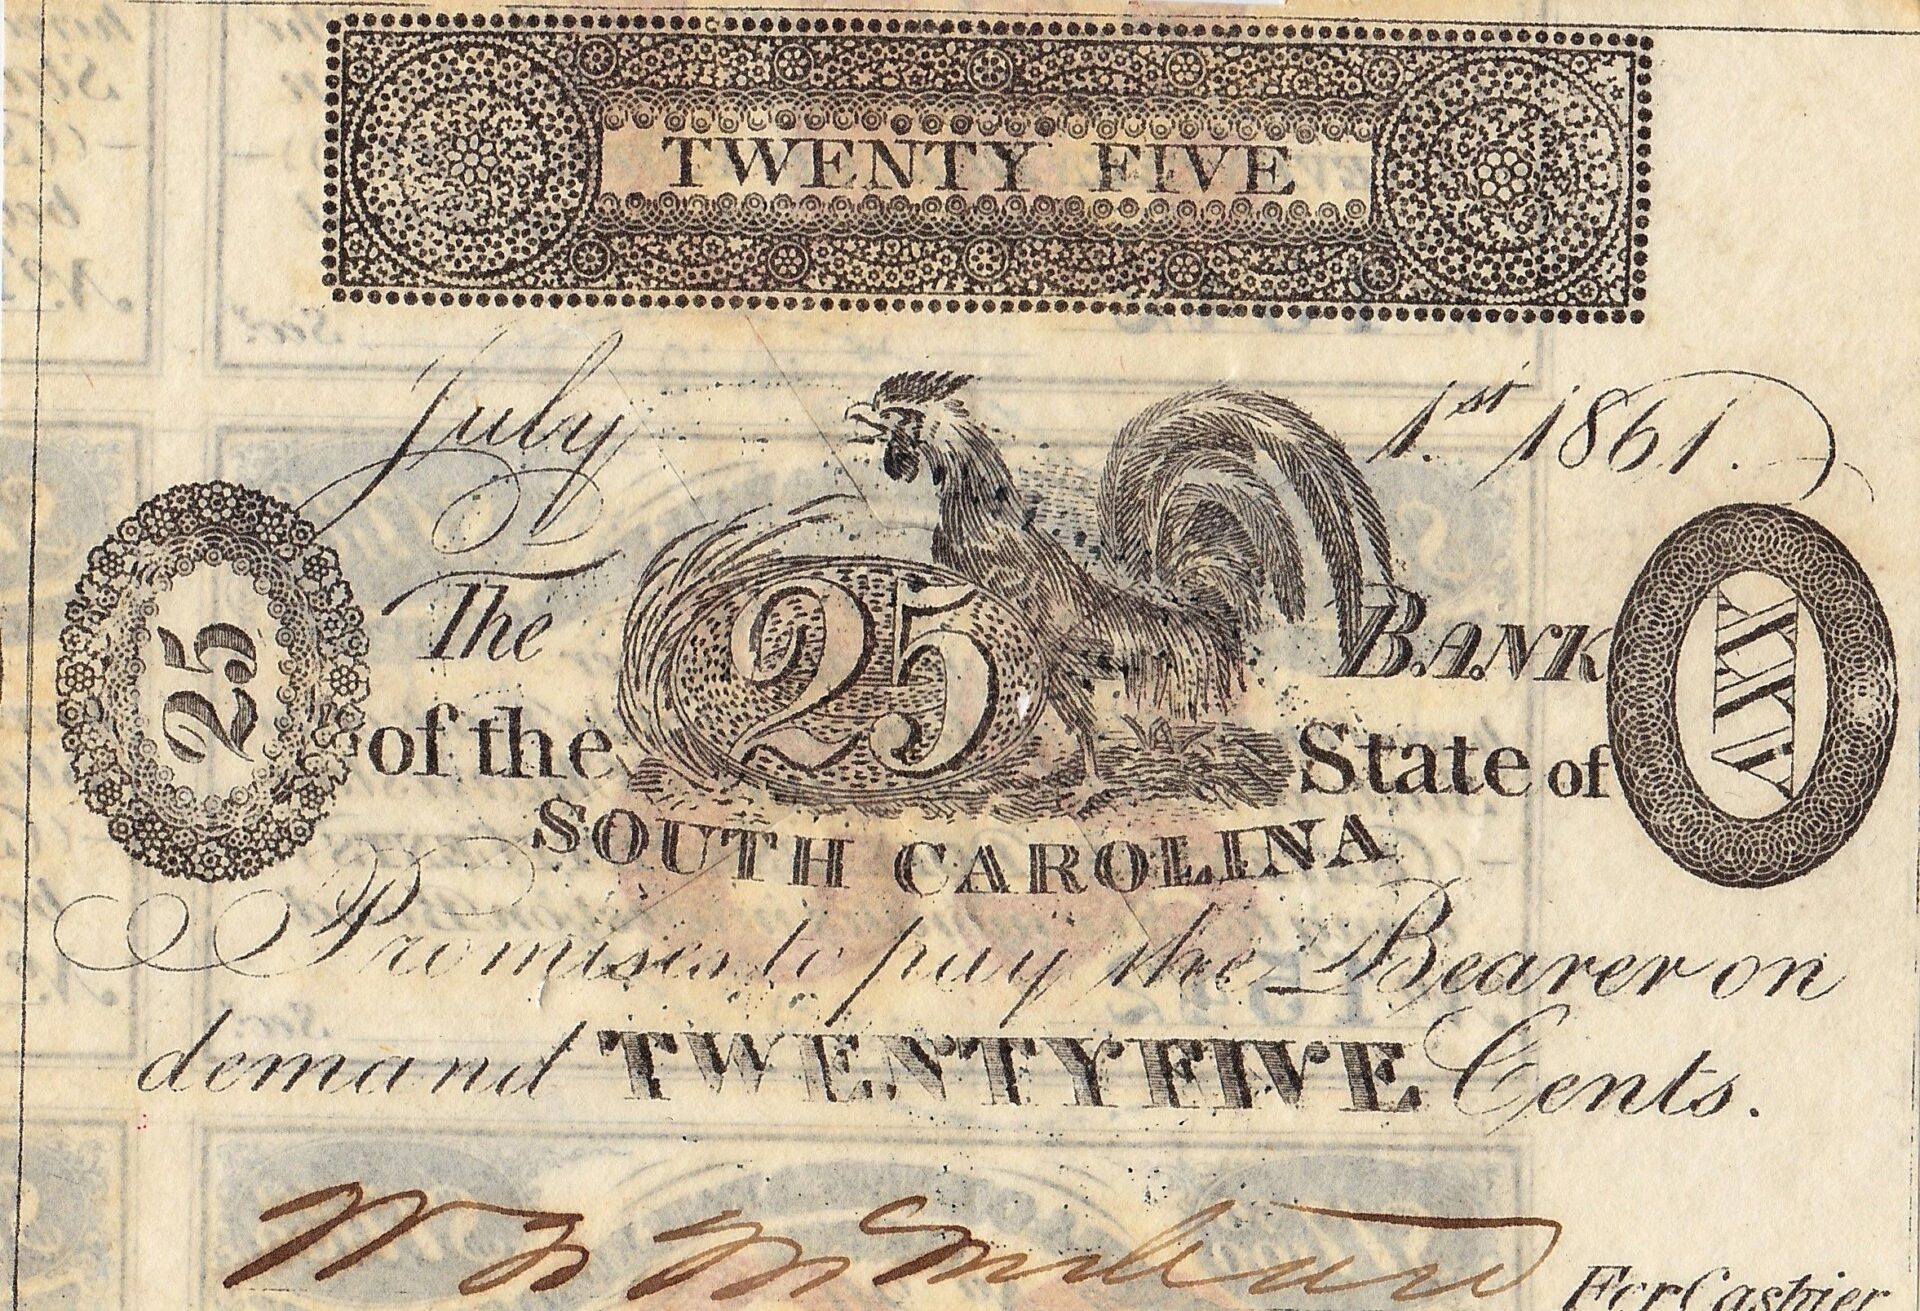 TWENTY FIVE
July 1.st 1861.
25
The 25 BANK
of the State of
XXV
SOUTH CAROLINA
Promises to pay the Bearer on
demand TWENTY FIVE Cents.
For Cashier